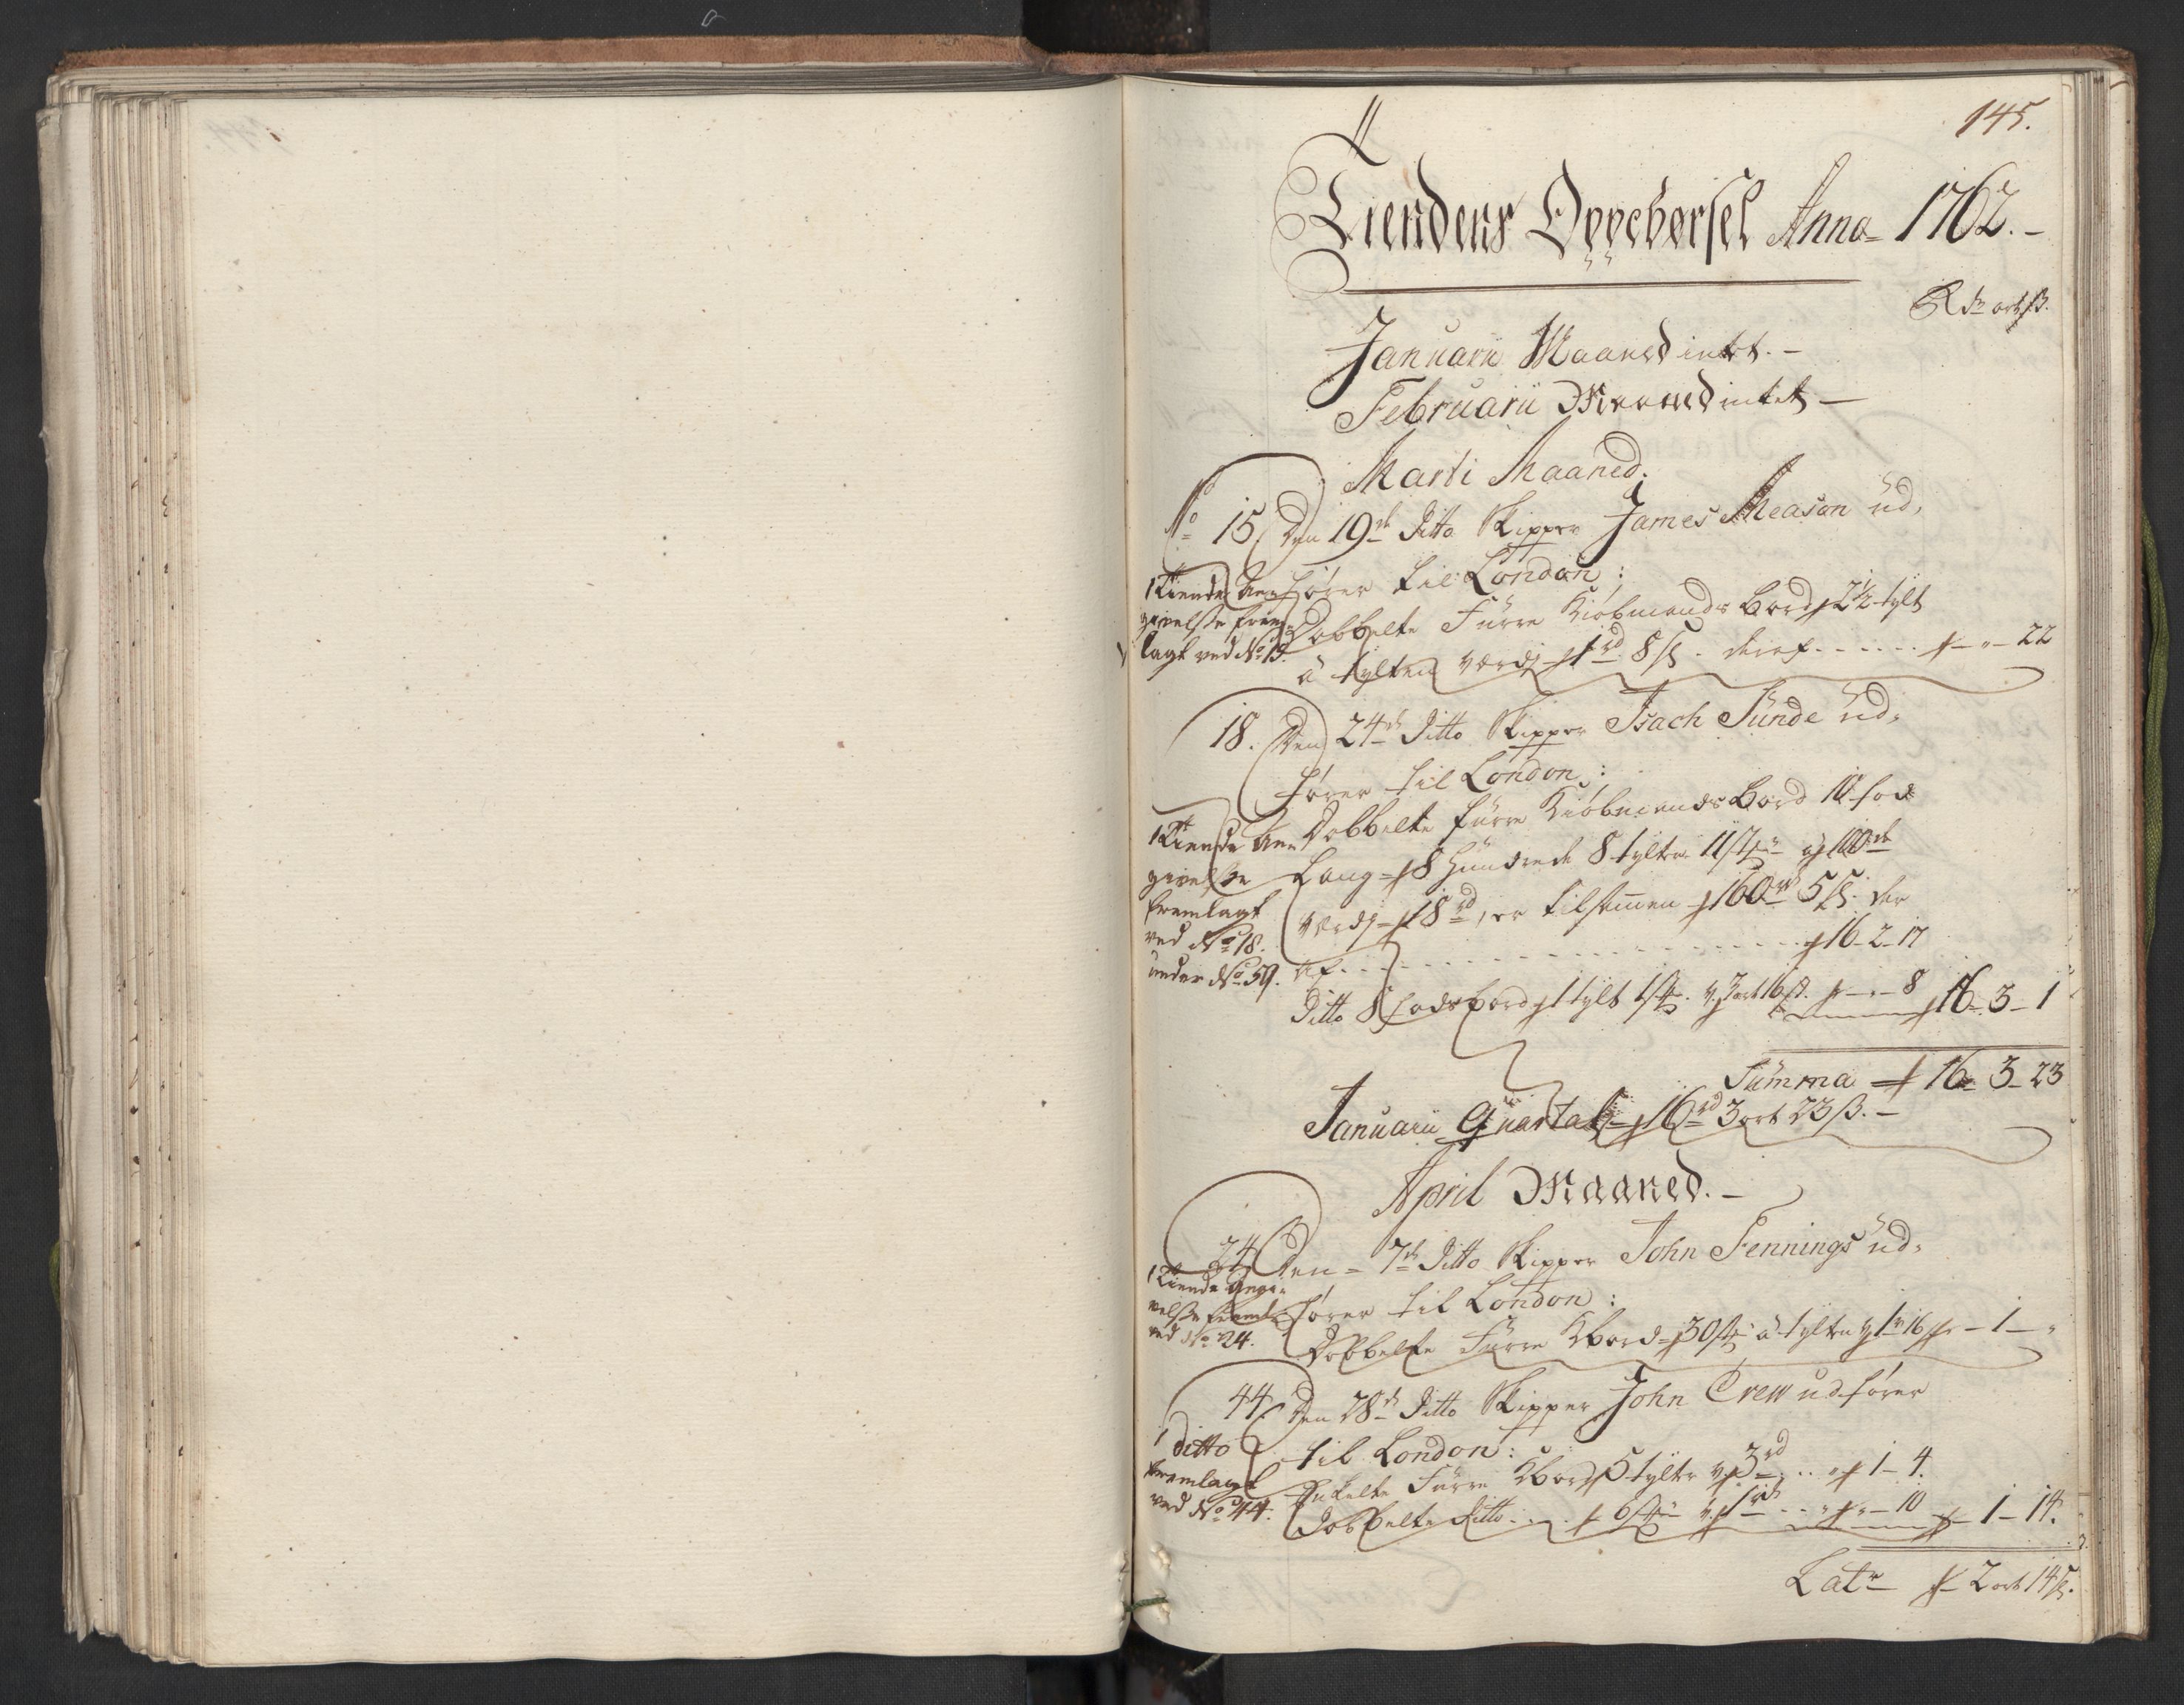 145.
Tiendens Oppebørsel Anno 1762.-
Rdr ort ß.
Januarii Maaned intet.-
Februarii Maaned intet-
Marti Maaned.
No 15 Den 19de Ditto Skipper James Meason üd,
fører til London:
Dobbelte Fürre Kiøbmands Bord 2½ tylt
à tylten værdj 1rd 8ß. deraf...... - " - 22
1 Tiende An-
givelse frem-
lagt ved No 15.
18. Den 24de Ditto Skipper Isach Sünde üd-
fører til London:
Dobbelte fürre Kiøbmands Bord 10 fod
Lang 8 Hundrede 8 tylter 11 st: à 100de
værdj 18rd, er tilsammen 160rd 5ß. der
af............ 16-2-17
Ditto 8 fods bord 1 tylt 1 st. 3 ort 16ß. - " - 8 16-3-1
1 Tiende An-
givelse
fremlagt
ved No 18.
under No 59.
Summa 16-3-23
Januarii Qvartal 16rd 3 ort 23ß.-
April Maaned.-
24 Den 7de Ditto Skipper John Jennings üd-
fører til London:
Dobbelte Fürre Kbord 30 st: à tylten 16 - 1 - "
1 Tiende Angi-
velse freml:
ved No 24.
44 Den 28de Ditto Skipper John Crew udfører
til London:
Enkelte Fürre Kbord 5 tylter 3rd... 1-4.
Dobbelte Ditto.... 6 st: 1rd.. " - 10 - 1-14.
1 Ditto
fremlagt
ved No 44.
Latr 2 ort 14ß.